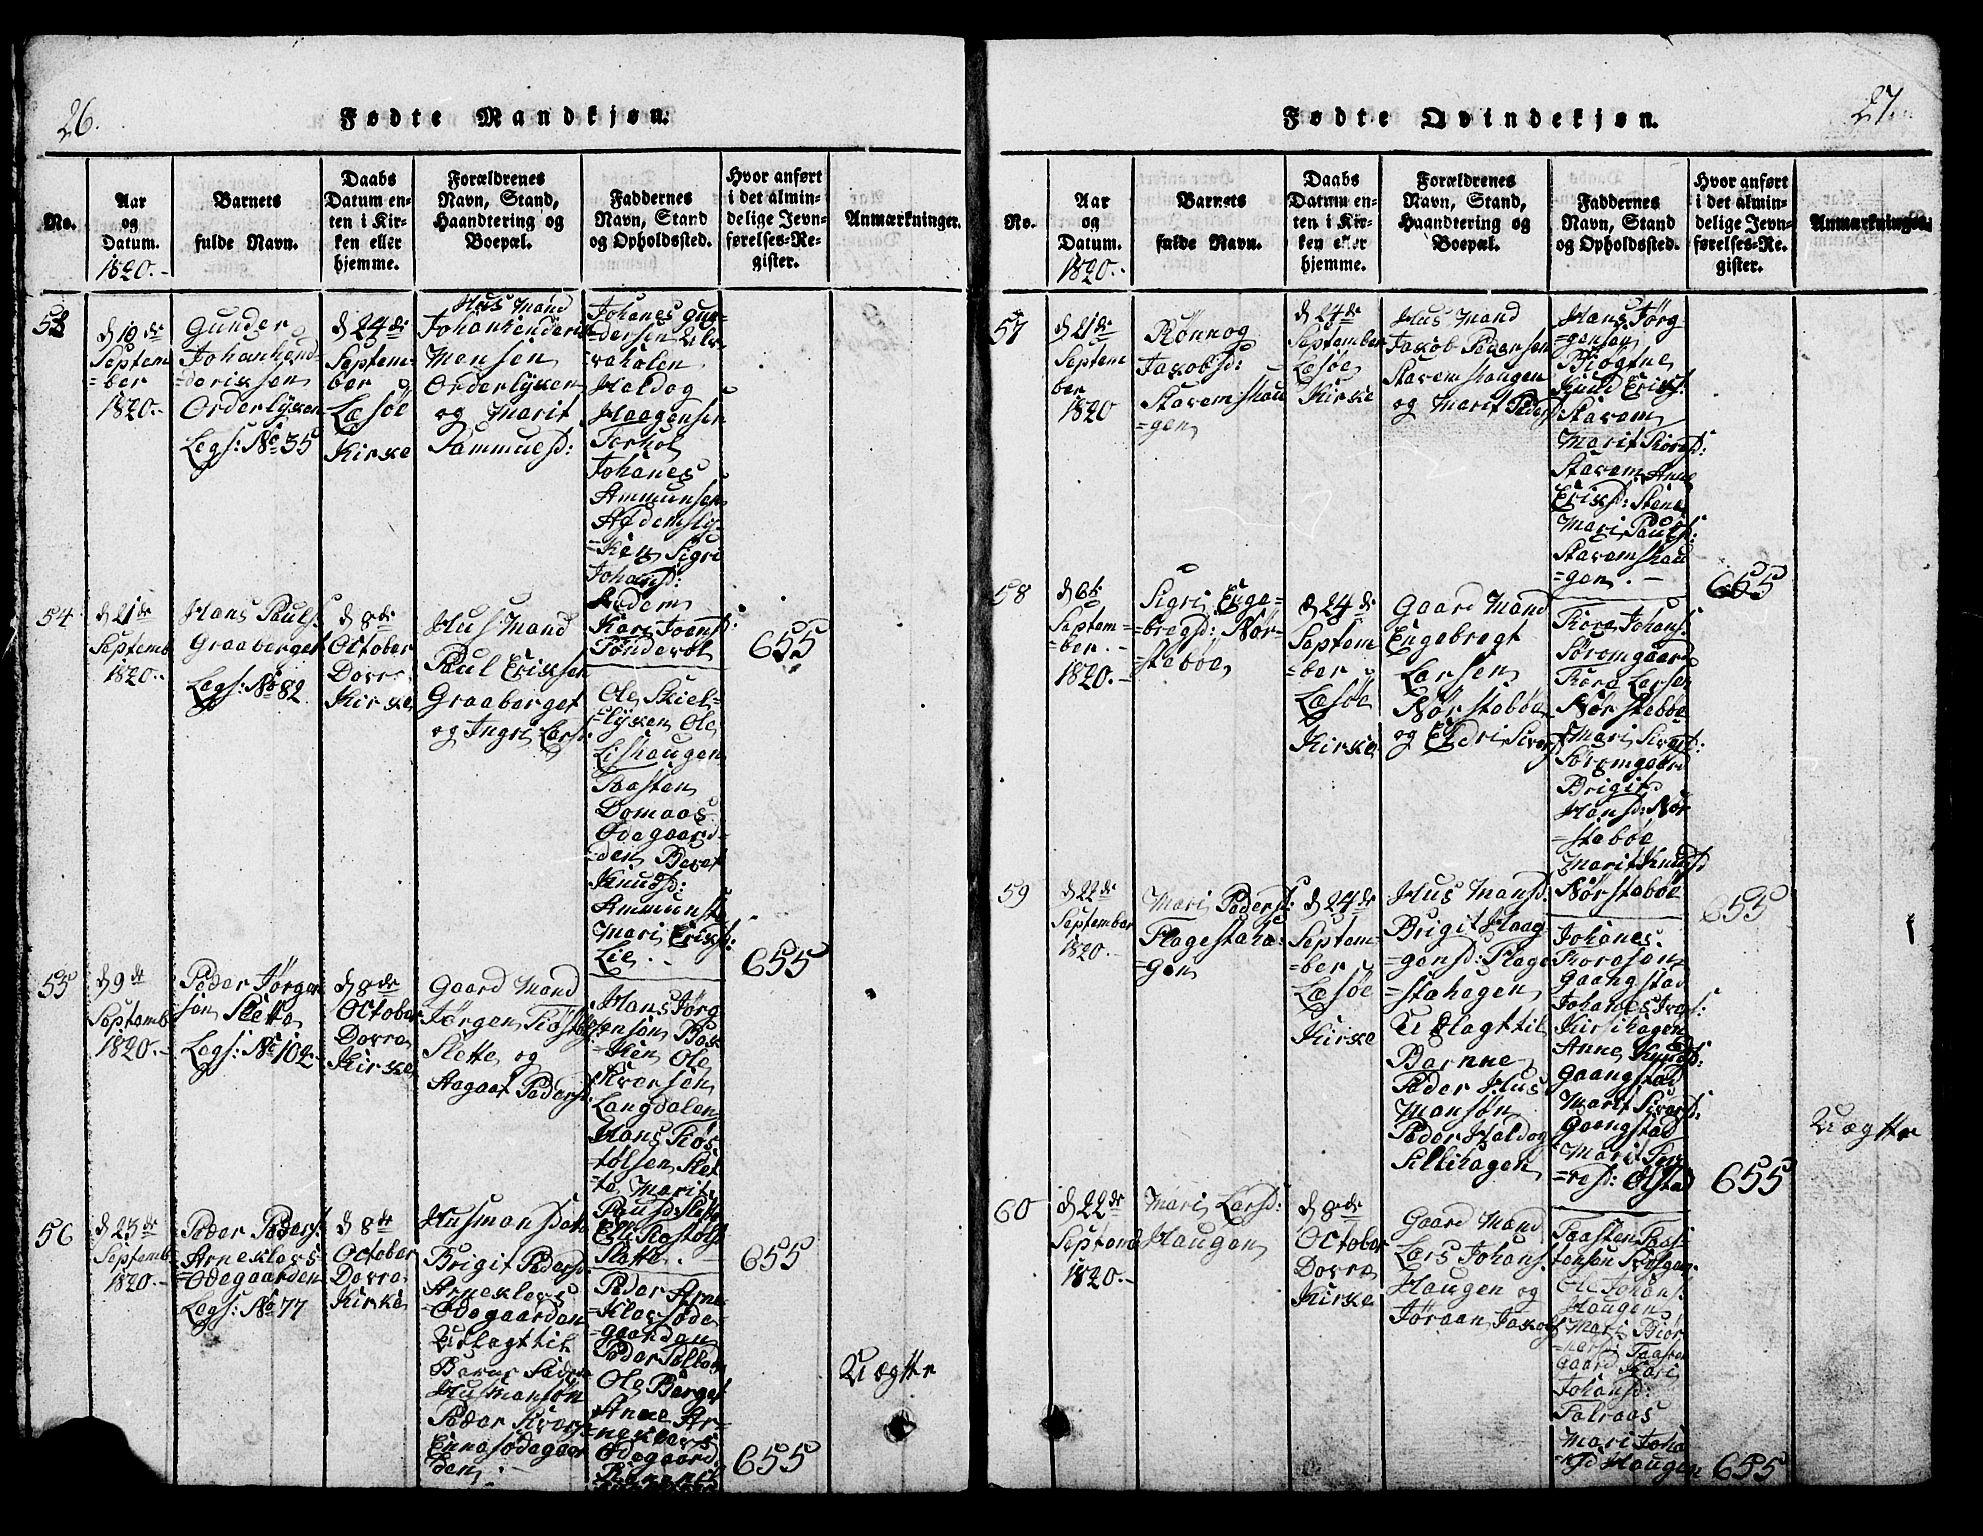 26.
Fødte Mandkjøn.
No.
Aar
og
Datum.
1820.-
Barnets
fulde Navn.
Daabs
Datum en-
ten i Kir-
ken eller
hjemme.
Forældrenes
Navn, Stand,
Haandtering og
Boepæl.
Faddernes
Navn, Stand
og Opholdssted.
Hvor anført
i det almin-
delige Jevn-
førelses-Re-
gister.
Anmærkninger.
53
d 10de
Septem
=ber
1820.-
Gunder
Johankend=
=deriksen
Orderlyken
Legs: No 35
d 24de
Septem=
ber
Læsøe
Kirke
Hus Mand
Mensen
Orderlyken
og Marit
Sammuelsd:
Johanes Gun=
=dersen
Haldog
Haagensen
Johanes
Ammunsen
=ken Sigri
Johansd:
Kari
655
54
d 21de
Septemb
1820.-
Hans Pauls:
Graaberget
Legs: No 82
d 8de
October
Dovre
Kirke
Hus Mand
Paul Eriksen
Graaberget
og Ingri Larsd:
Ole Skiel=
=lyken Ole
Lishaugen
Paasten
Domaas
Ødegaard=
=den Beret
Knudsd:
Mari Eriksd:
Lie.-
655
55
d 9de
Septemb
1820.-
Peder Jørgen
sen Slette
Legs: No 102-
d 8de
October
Dovre
Kirke
Gaard Mand
Jørgen
Slette og
Aagaat Pedersd:
Hans Jørg
=ensen
=ken Ole
Iversen
Langdalen
Hans Røs
=tølsen Slet
=te Marit
Paulsd: Slette
Slette.-
655
56
d 23de
Septemb
1820.-
Peder Peders:
Arneklevs
=Ødegaarden
Legs: No 77
d 8de
October
Dovre
Kirke
Brigit Pedersd:
Arneklevs
Ødegaarden
Udlagt til
Peder
Husmansøn
Peder Sivers:
den.-
Peder Arne
=klevsøde
=gaarden
Ole
Anne Ar=
=neklevs
Ødegaard
655
Uægtte
27.
Fødte Qvindekjøn.
No.
Aar
og
Datum.
1820.-
Barnets
fulde Navn.
Daabs
Datum en-
ten i Kir-
ken eller
hjemme.
Forældrenes
Navn, Stand,
Haandtering og
Boepæl.
Faddernes
Navn, Stand
og Opholdssted.
Hvor anført
i det almin-
delige Jevn-
førelses-Re-
gister.
Anmærkninger.
57
d 21de
Septem
ber
1820
Rønnog
Jakobsd:
Stavemshau
=gen
d 24de
September
Læsøe
Kirke
Hus Mand
Jakob Pedersen
Stavemshaugen
og Marit Peders
Hans Jørg
=gensen
Knud Eriks:
Stavem
Marit Torsd:
Stavem Anne
Eriksd: Stene
Mari Paulsd:
Stavemshau
=gen.-
655
58
d 6te
Septem=
=ber.-
1820.-
Sigri Enge=
=bregsd: Nør=
=stebøe
d 24de
Septem
=ber
Læsøe
Kirke
Gaard Mand
Engebregt
Larsen
Nørstebøe
og Eldri Sivers
Tore Johans:
Søromgaard
Tore Larsen
Nørstebøe
Mari Siversd:
Søromgaard
Brigit
Hansd: Nør
=stebøe
Marit Knudsd
Nørstebøe
655
59
d 22de
September
1820.
Mari Pedersd:
Flagestaha=
=gen
d 24de
Septem=
=ber
Læsøe
Kirke
Hus Mansd:
Brigit Haag
=gensd: Flage
=stahagen
Udlagt til
Barnne
Peder Hus
Mansøn
Peder Haldog
Sillihagen
Johanes
Toresen
Gaangstad
Johanes Ivers:
Kirkihagen
Anne Knudsd:
Gaangstad
Marit Siversd:
Gaangstad
Marit
=resd: Ølstad
655
Uægtte
60
d 22de
Septemb
1820.-
Mari Larsd:
Haugen
d 8de
October
Dovre
Kirke
Gaard Mand
Lars Johans:
Haugen og
Jøraan Jakobs
Paasten Paas=
tensen
Ole Johans:
Haugen
Mari Biør
Johansd:
Talraas
Mari Joha
=nsd Haugen
655